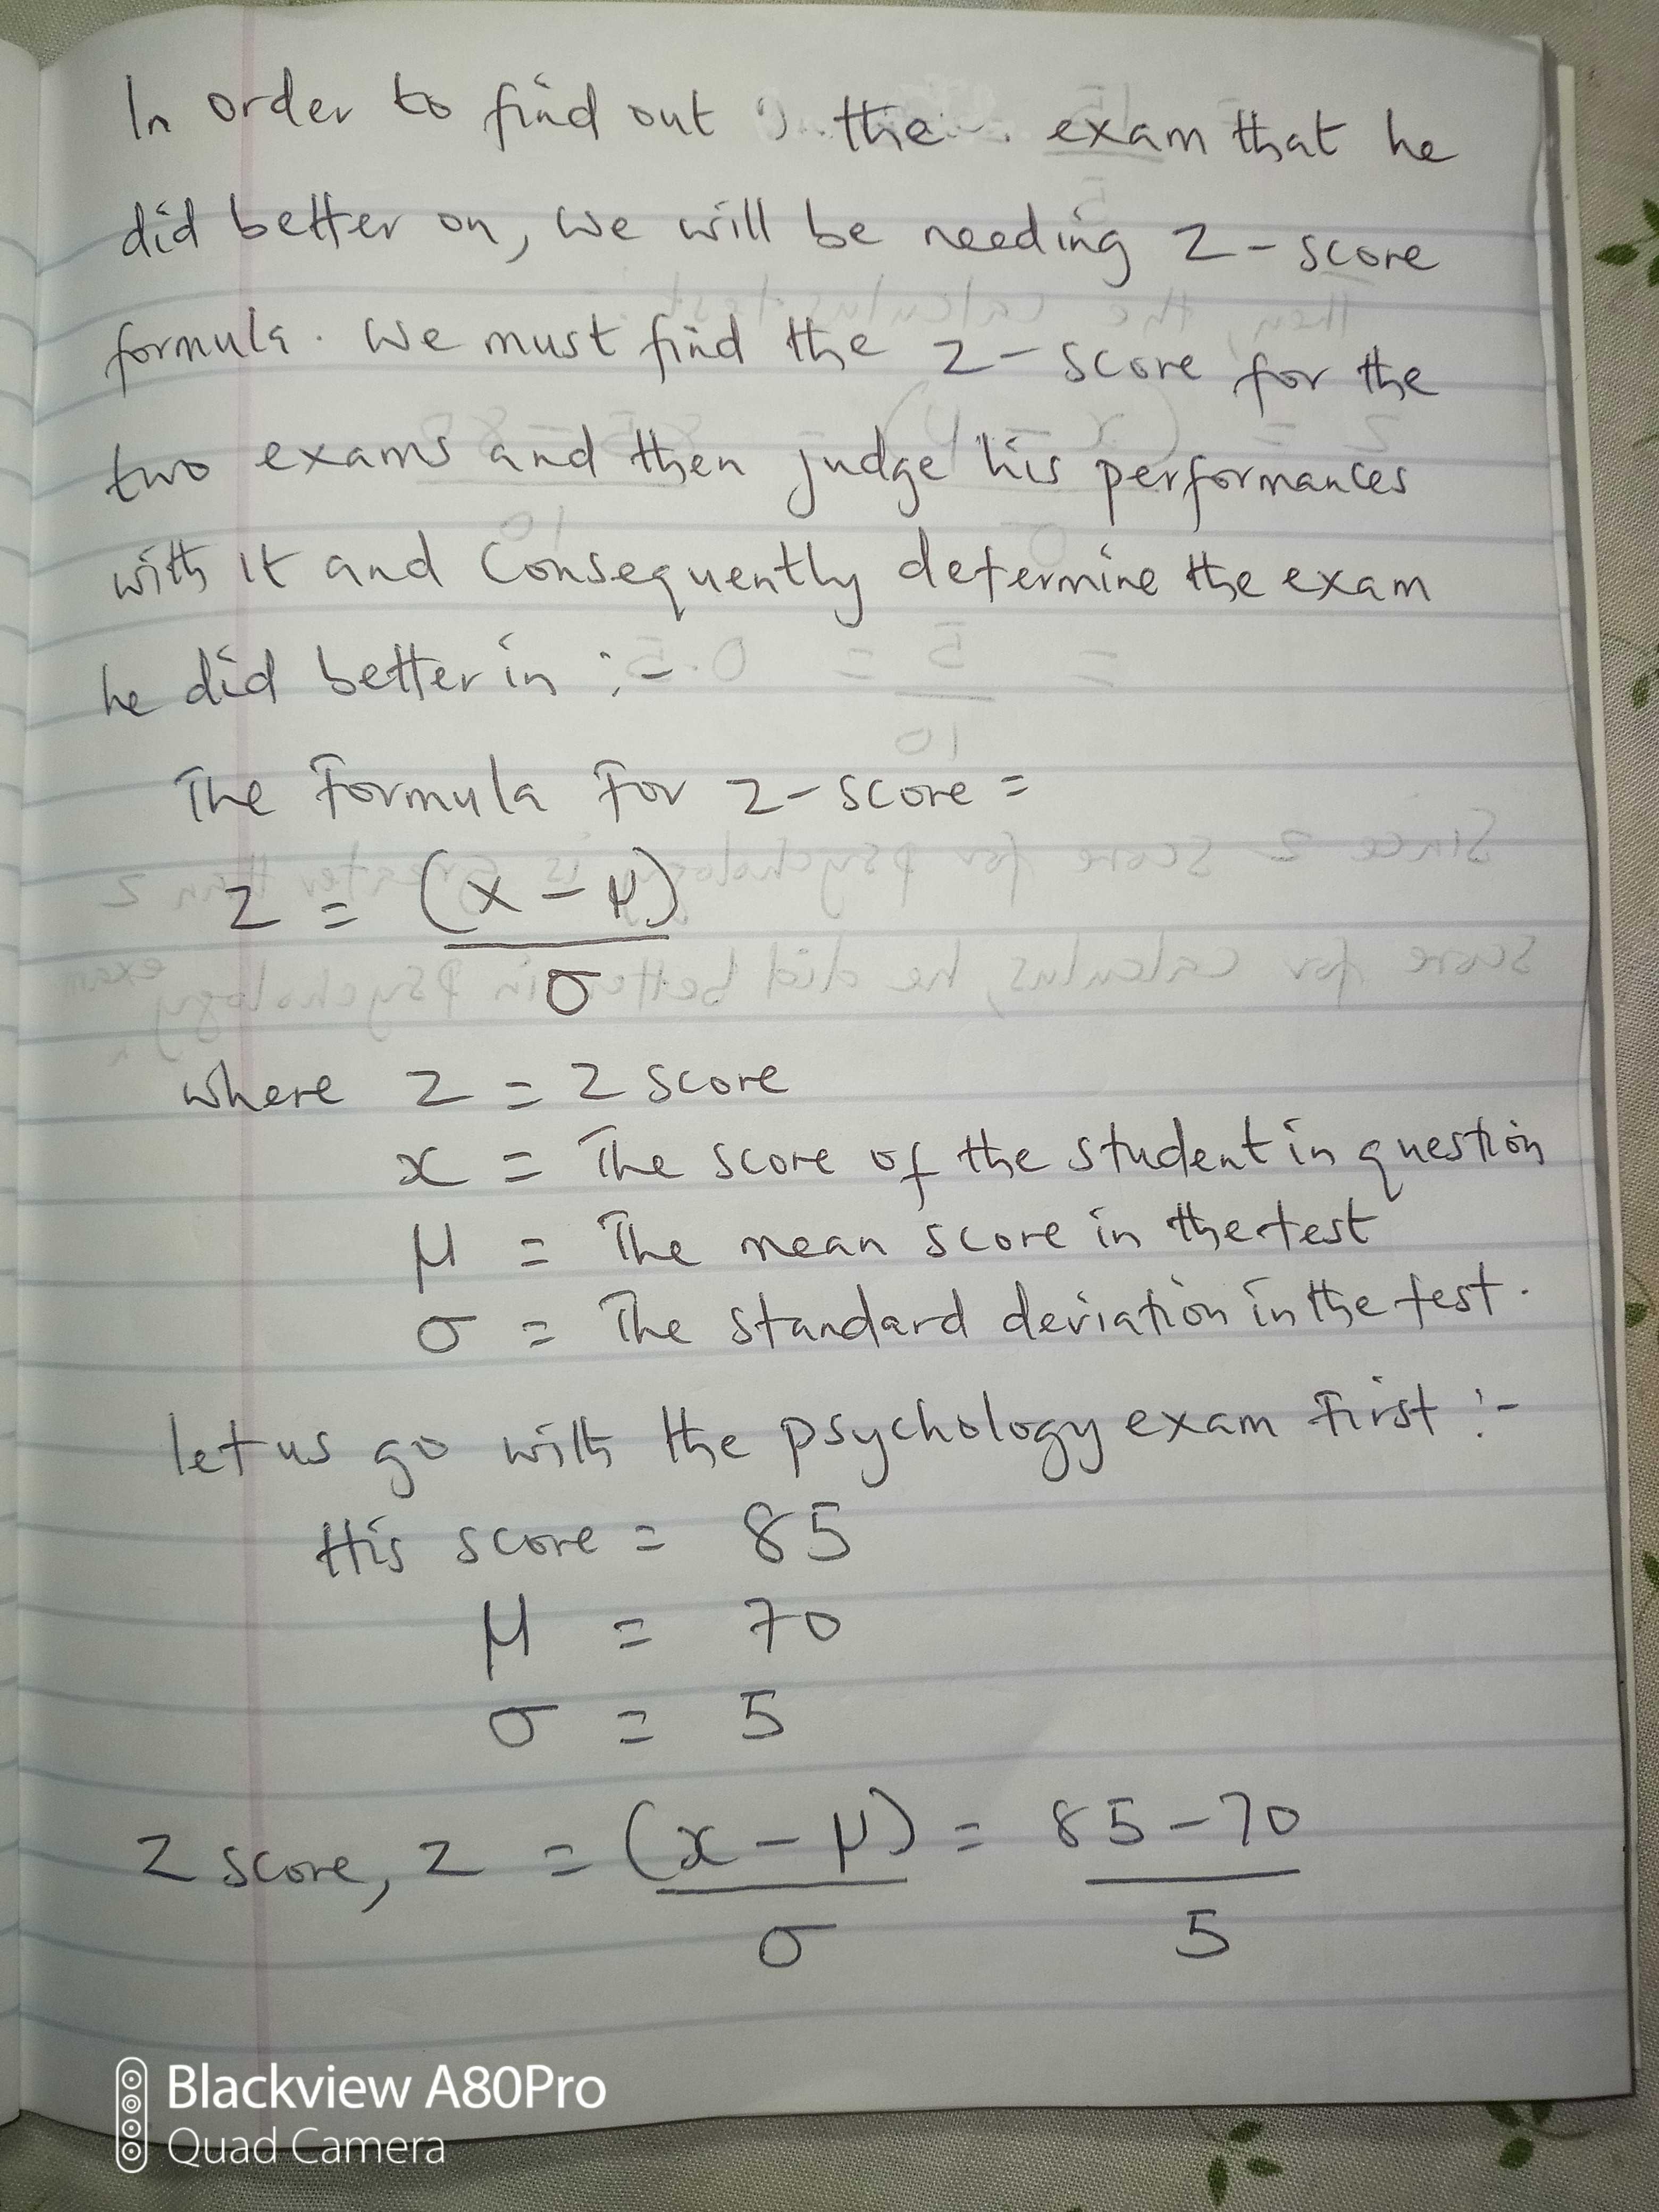 In order to find out the exam that he
did better on, we will be needing z-score
formula. We must find the z-score for the
two exams and then judge his performances
with it and consequently determine the exam
he did better in :-
The formula for z-score =
z = (x - μ)
σ
where z = z score
x = The score of the student in question
μ = The mean score in the test
σ = The standard deviation in the test.
let us go with the psychology exam first :-
His score = 85
μ = 70
σ = 5
z score, z = (x - μ) = 85-70
σ 5
Blackview A80Pro
Quad Camera